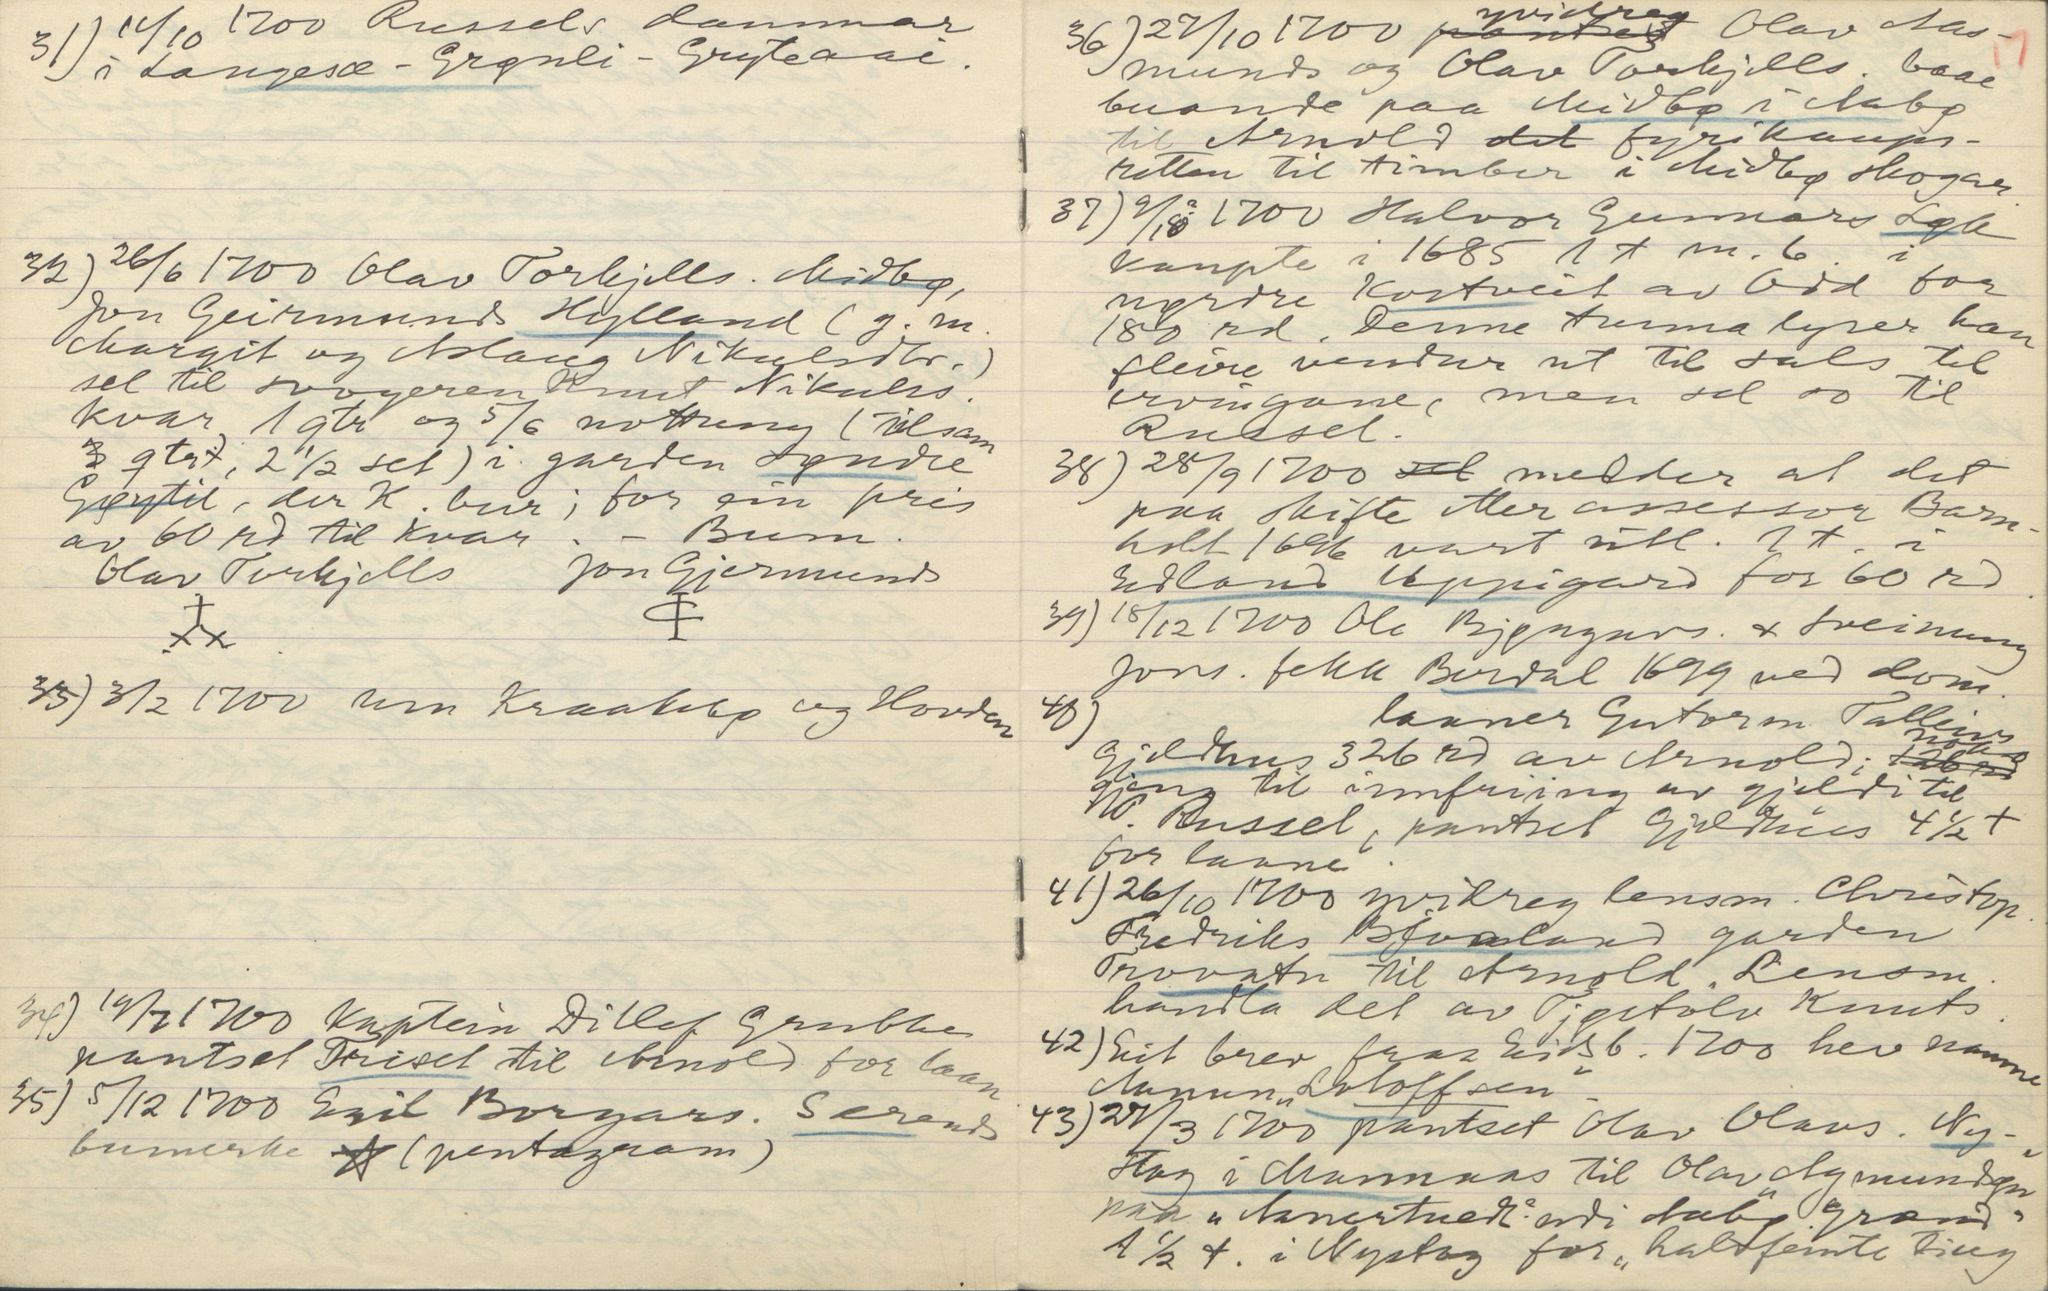 31) 14/10 1700 Russels dammar
i Langesæ - Grønli - Gryteaai.
32) 26/6 1700 Olav Torkjells. Midbø,
Jon Geirmunds Hylland (g. m.
Margit og Aslaug Nikulsdtr.)
sel til svogeren Knut Nikuls.
kvar 1 qtr og 5/6 nottung (tilsam
3 qtr, 2 1/2 set) i garden Syndre
Gjøytil, der K. bur; for ein pris
av 60 rd til kvar. - Bum.
Olav Torkjells Jon Gjermunds
33) 3/2 1700 um Kraakebø og Hovden
34) 19/7 1700 Kaptein Ditlef Grubbe
pantset Triset til Arnold for laan
35) 5/12 1700 Egil Borgars. Særends
bumerke (pentagram)
17
36) 27/10 1700 pantset yvidreg Olav Aas-
munds og Olav Torkjells. baae
buande paa Midbø i Aabø
til Arnold det fyrikaups-
retten til timber i Midbø skogar
37) 9/12 1700 Halvor Gunnars Løk
kaupte i 1685 1 t m. 6. i
nørdre Kostveit av Odd for
180 rd. Denne tunna lyser han
fleire vendur ut til sals til
ervingane, men sel so til
Russel.
38) 28/9 1700 sel melder at det
paa skifte etter assessor Barn-
holt 1696 vart utl. 1 t. i
Edland Uppigard for 60 rd.
39) 18/12 1700 Ole Bjøngurs. + Sveinung
Jons. fekk Berdal 1699 ved dom.
40) laaner Gutorm Talleivs
Gjeldhus 326 rd av Arnold; 126 rd noko
gjeng til innfriing av gjeldi til
W. Russel, pantset Gjeldhus 4 1/2 t
for laane.
41) 26/10 1700 yvidreg lensm. Christop.
Fredriks Bjaaland garden
Trovatn til Arnold. Lensm.
handla det av Tjøstolv Knuts.
42) Eit brev fraa Eidsb. 1700 hev namne
Aamun "Loloffsen"
43) 27/3 1700 pantset Olav Olavs. Ny-
stog i Mannaas til Olav "Aamundsøn"
paa "Aanertuedt" udi Aabø grænd"
1 1/2 t. i Nystog for "halvfemte tiug